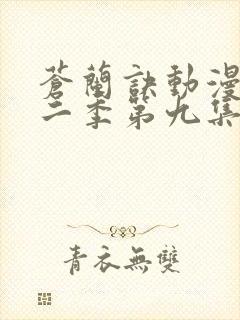 蒼蘭訣動漫
二季第九集
青衣無雙